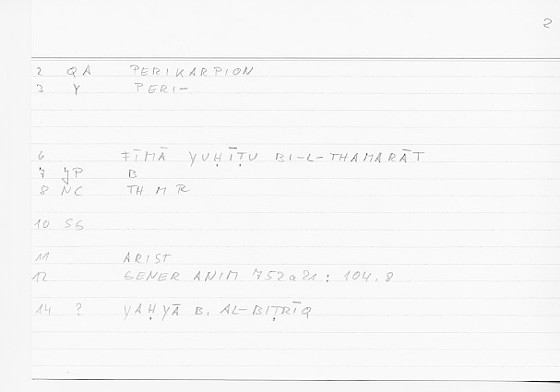 2
2 QA PERIKARPION
3 Y PERI-
6 FĪMĀ YUḤĪṬU BI-L-THAMARĀT
7 YP B
8 NC TH M R
10 SS
11 ARIST
12 GENER ANIM 752a21 : 104.8
14 ? YAḤYĀ B. AL-BIṬRĪQ